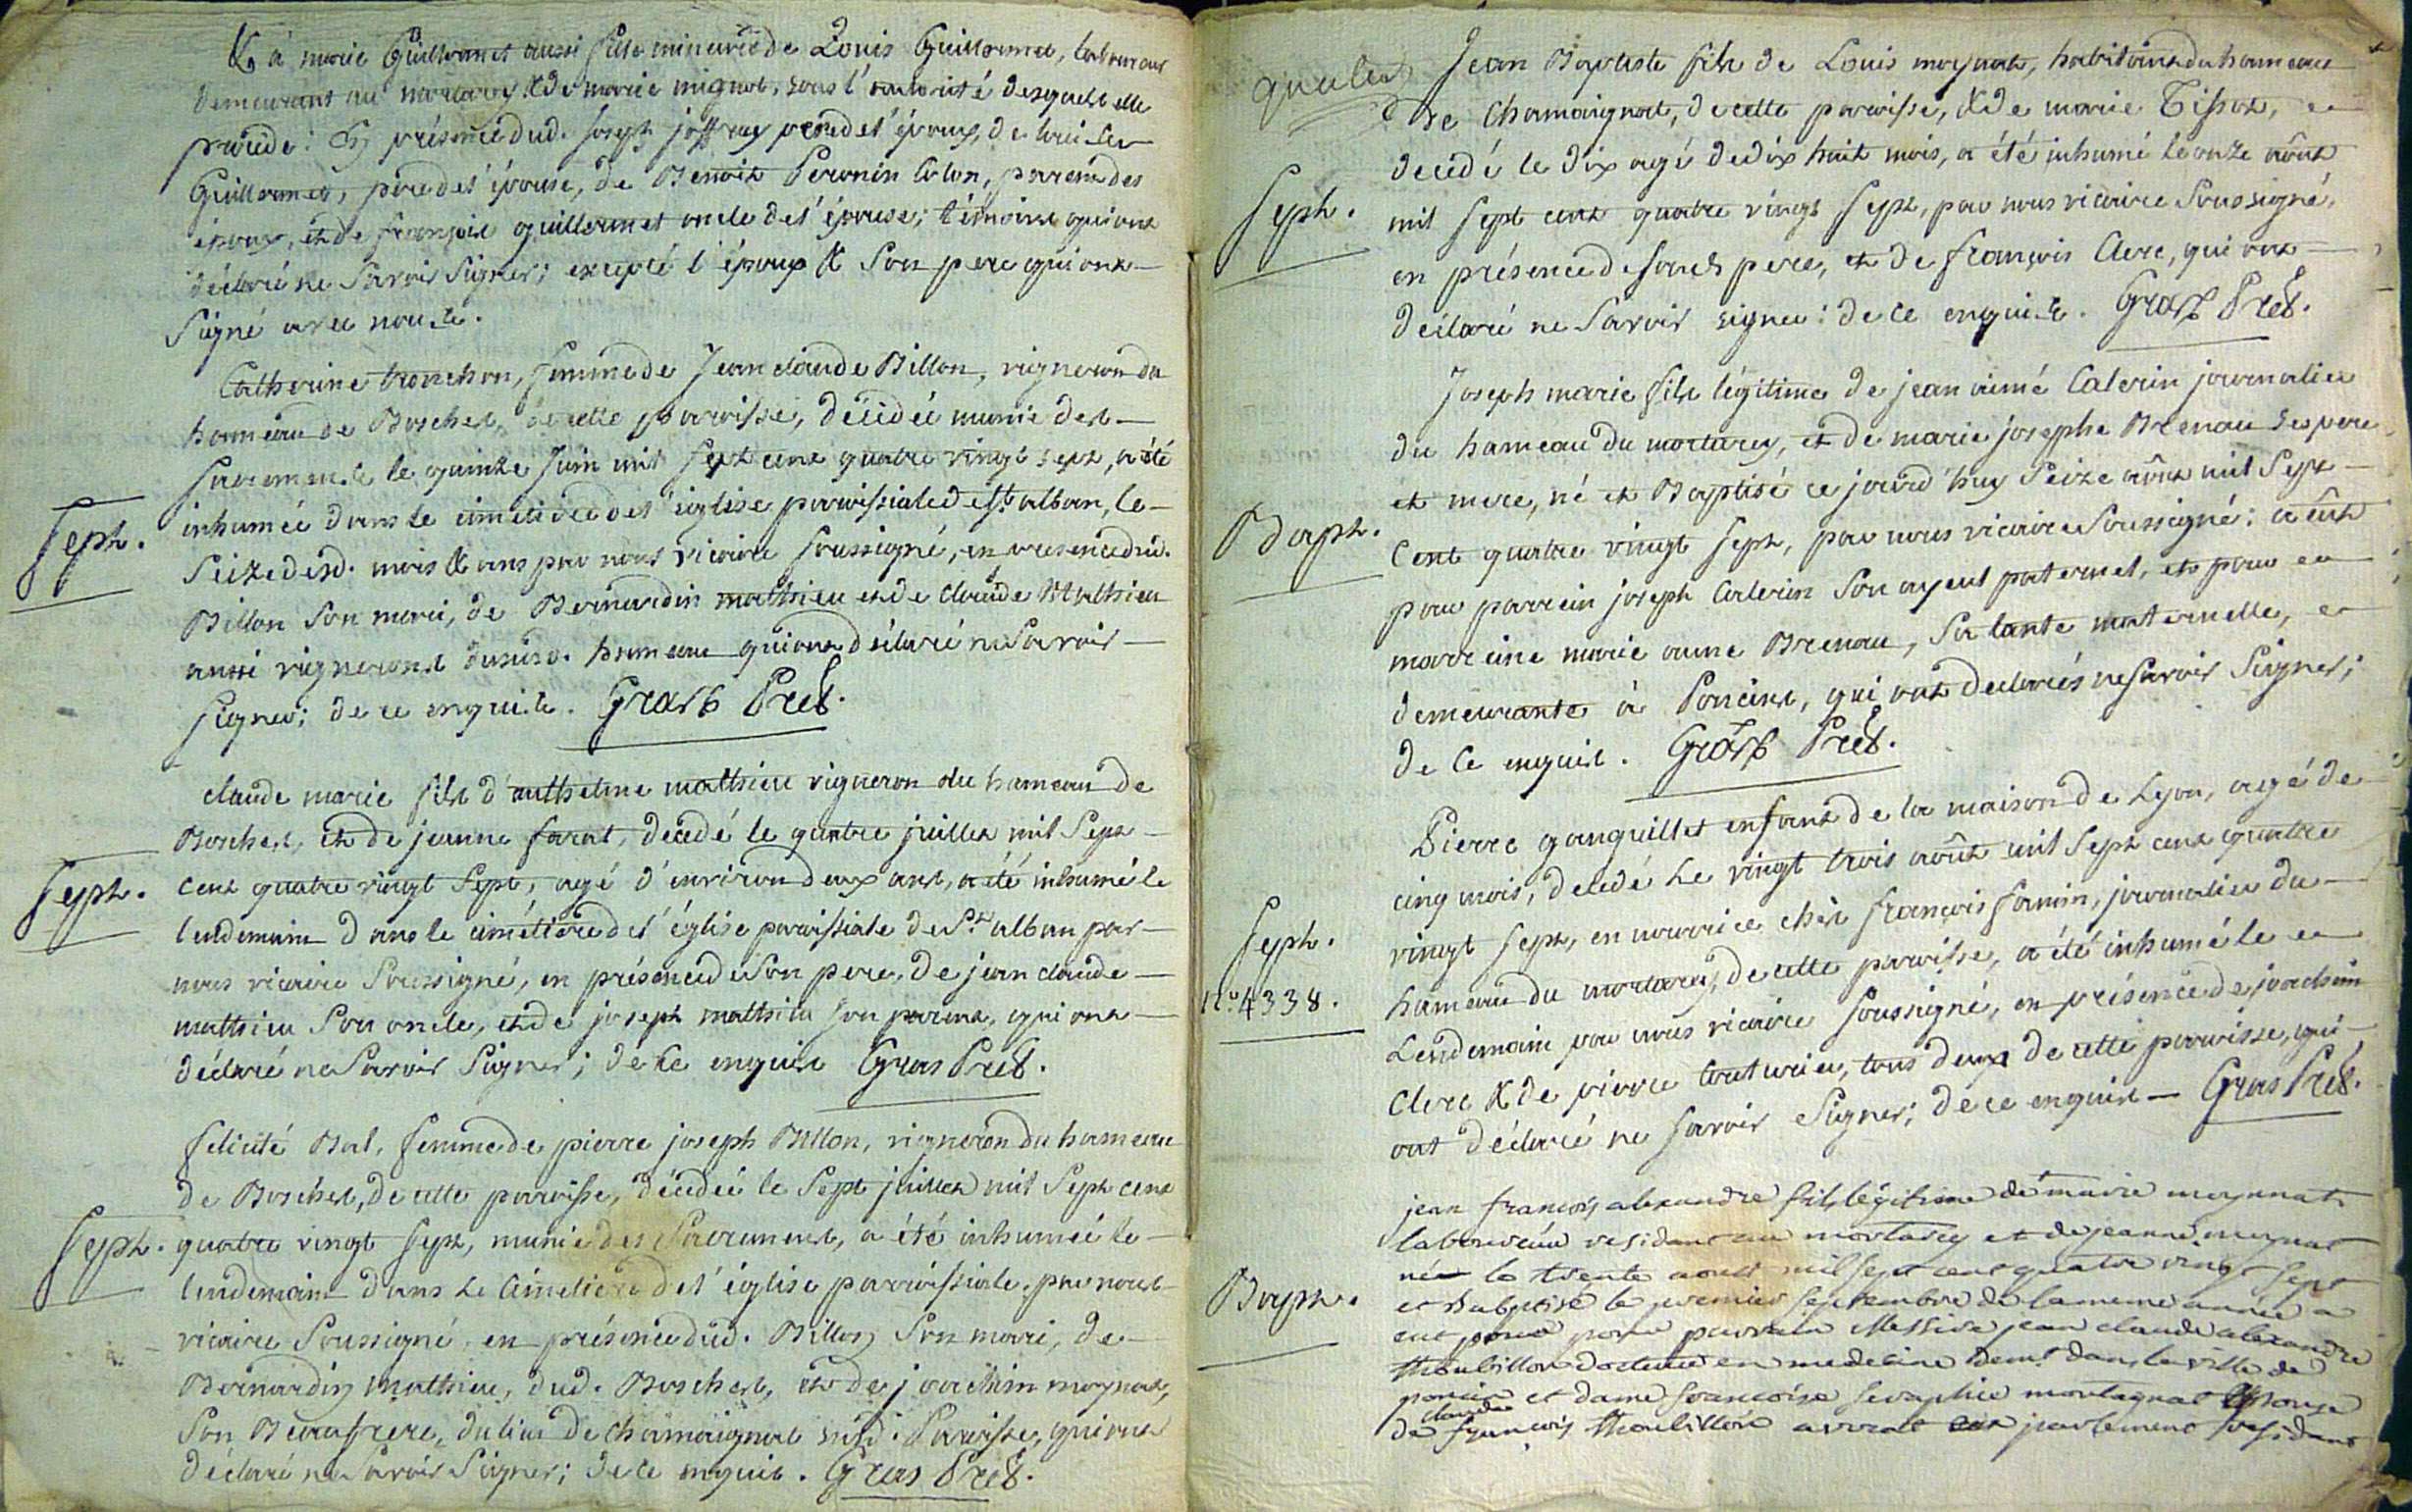 & à marie Guillermet aussi fille mineure de Louis Guillermet, laboureur
demeurant au mortarey & de marie mignot, sous l'autorité desquels elle
procède: En présence dud. Joseph joffrey pere de l'époux, de Louis
Guillermet, pere de l'épouse, de Benoit Peronin Colon, parrein des
époux, et de françois guillermet oncle de l'épouse; témoins qui ont
déclaré ne Savoir Signer; excepté l'époux & Son pere qui ont
Signé avec nous.
Catherine tronchon, femme de Jean claude Billon, vigneron du
hameau de Boscher, de cette paroisse, décédée munie des
Sacremens le quinze Juin mil Sept cent quatre vingt sept, a été
Seph.
inhumée dans le cimetiere de l'église paroissiale de St. alban, le
Seize desd. mois & ans par nous vicaire soussigné, en presence dud.
Billon Son mari, de Bernardin mathieu et de Claude Mathieu
aussi vignerons dususd. hameau qui ont déclaré ne Savoir
Signer; de ce enquis. Gras Pret.
claude marie fils d'anthelme mathieu vigneron du hameau de
Boscher, et de jeanne farat, décédé le quatre juillet mil Sept
Seph.
cent quatre vingt Sept, agé d'environ deux ans, a été inhumé le
lendemain dans le cimétiere de l'église paroissiale de St. alban par
nous vicaire Soussigné, en présence de Son pere, de jean claude
mathieu Son oncle, et de joseph mathieu Son parent, qui ont
déclaré ne Savoir Signer; de ce enquis Gras Pret.
félicité Bal, femme de pierre joseph Billon, vigneron du hameau
de Boscher, de cette paroisse, décédée le Sept juillet mil Sept cent
Seph.
quatre vingt Sept, munie des Sacremens, a été inhumée le
lendemain dans le Cimetiere de l'église paroissiale par nous
vicaire Soussigné, en présence dud. Billon Son mari, de
Bernardin Mathieu, dud. Boscher, et de joachim moynat,
Son Beaufrere, du lieu de Chamaignat susd. Paroisse, qui ont
déclaré ne Savoir Signer; de ce enquis. Gras Pret.
Jean Baptiste fils de Louis moynat, habitant du hameau
de Chamaignat, de cette paroisse, & de marie Tissot,
décédé le dix agé de dix huit mois, a été inhumé le onze août
Seph.
mil Sept cent quatre vingt Sept, par nous vicaire Soussigné,
en présence de Sond. pere, et de françois Clerc, qui ont
déclaré ne Savoir signer: de ce enquis. Gras Pret.
Joseph marie fils légitime de jean aimé Calerin journalier
du hameau du mortarey, et de marie josephe Brenau Ses pere
et mere, né et Baptisé ce jourd'huy Seize août mil Sept
Bapt.
Cent quatre vingt Sept, par nous vicaire Soussigné: a eut
pour parrein joseph Calerin Son ayeul paternel, et pour
marreine marie anne Brenau, Sa tante maternelle,
demeurante à Poncins, qui ont declarés ne Savoir Signer;
de ce enquis. Gras Pret.
Pierre ganguillet enfant de la maison de Lyon, agé de
cinq mois, décédé Le vingt trois août mil Sept cent quatre
Seph.
vingt Sept, en nourrice chés françois famin, journalier du
N.o 4338.
hameau du mortarey, de cette paroisse, a été inhumé le
Lendemain par nous vicaire Soussigné, en présence de joachim
Clerc & de pierre Couturier, tous deux de cette paroisse, qui
ont déclaré ne Savoir Signer; de ce enquis Gras Pret.
jean francois alexandre fils légitime de marie moynat
laboureur residant au mortarey et de jeanne moynat
né le trente aoust mil sept cent quatre vingt sept
et babptisé le premier septembre de la meme année a
Bapt.
eut pour parrain Messire jean claude alexandre
thoubillon docteur en medecine demt dans la ville de
poncin et dame francoise seraphie montagnat Epouse
de claude francois thoubillon avocat en parlement residant